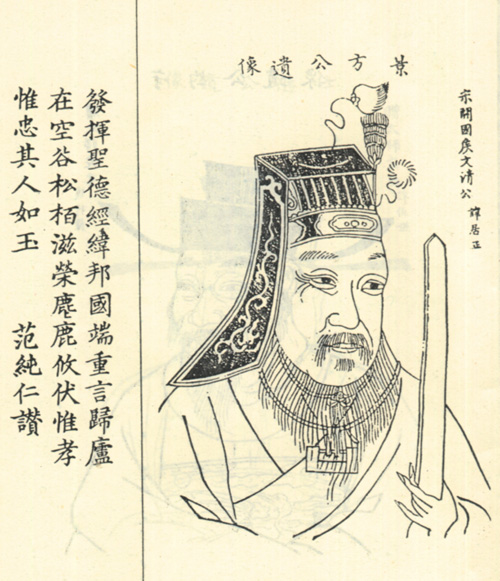 宋開國矦文清公 諱居正
景方公遺像
發揮聖德經緯邦國端重言歸廬
在空谷松栢滋榮麀鹿攸伏惟孝
惟忠其人如玉 范純仁讚